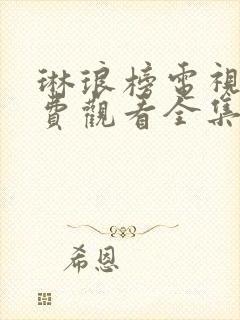 琳琅榜電視
費觀看全集
希恩